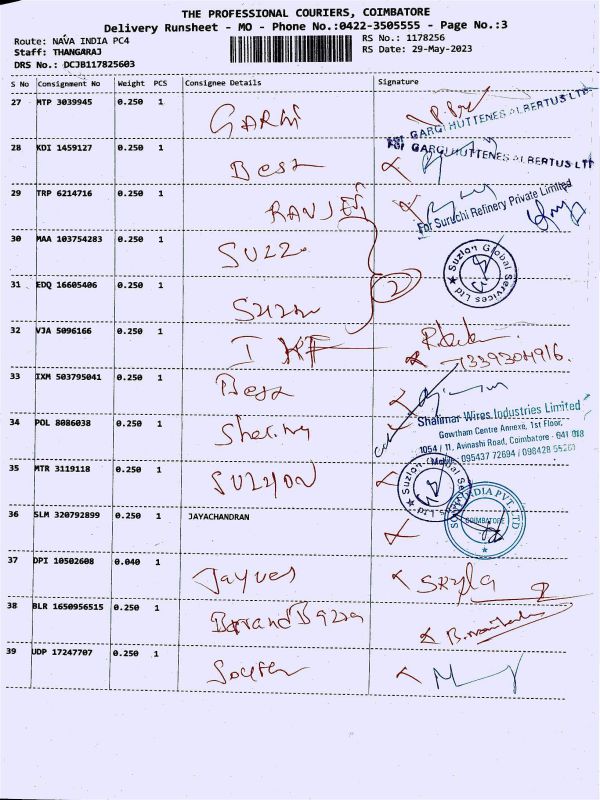 THE PROFESSIONAL COURIERS, COIMBATORE
Delivery Runsheet - MO - Phone No.:0422-3505555 - Page No.:3
Route: NAVA INDIA PC4
RS No.: 1178256
Staff: THANGARAJ
RS Date: 29-May-2023
DRS No.: DCJB117825603
S No Consignment No Weight PCS Consignee Details Signature
27 MTP 3039945 0.250 1
GARGI
GARGI HUTTENES ALBERTUS LTD
28 KDI 1459127 0.250 1
Best
GARGI HUTTENES ALBERTUS LTD
29 TRP 6214716 0.250 1
RANJEET
For Suruchi Refinery Private Limited
30 MAA 103754283 0.250 1
SUZZ
Suzlon Global Services Ltd
31 EDQ 16605406 0.250 1
2
32 VJA 5096166 0.250 1
I KF
7339304916.
33 IXM 503795041 0.250 1
Best
34 POL 8086038 0.250 1
Shalimar Wires Industries Limited
Gowtham Centre Annexe, 1st Floor,
1054 / 11, Avinashi Road, Coimbatore - 641 018
35 MTR 3119118 0.250 1
SUZLON
36 SLM 320792899 0.250 1 JAYACHANDRAN
INDIA PVT. LTD
COIMBATORE
37 DPI 10502608 0.040 1
Jayves
38 BLR 1650956515 0.250 1
Brand Bazza
39 UDP 17247707 0.250 1
South